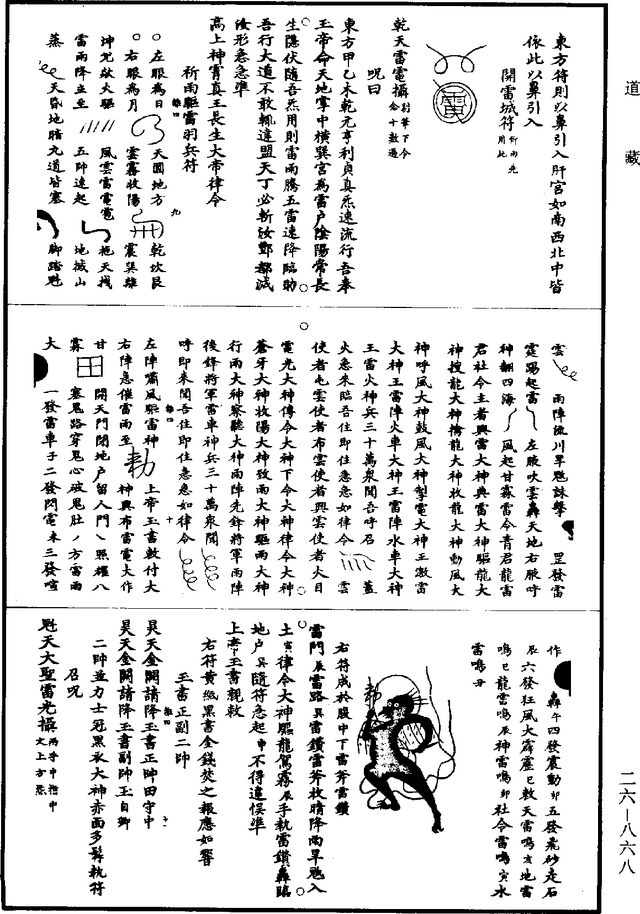 道藏
東方得則以鼻引入肝宮如南西北中皆
依此以鼻引入
開雷城符 祈雨先用此
乾天雷電攝 剔筆下令念十數遍
呪曰
東方甲乙木乾元亨利貞真炁速流行吾奉
王帝命天地掌中橫巽宮為雷户陰陽常長
生隱伏隨吾炁用則雷雨騰五雷速降臨助
吾行大道不敢輒違盟天丁必斬汝酆都滅
汝形急急準
高上神霄真王長生大帝律令
祈雨驅雷羽兵符
左眼為日 天圓地方 乾坎艮
右眼為月 雲霧收陽 震巽離
坤兌歘火驅 風雲雷電電 拖天拽
雷雨降立至 五帥速起 地撼山
蒸 天昏地暗允道皆塞 脚踏魁
雲 雨陣流川旱魃誅擊 罡發雷
霆踢起雷 左腋吹雲轟天地右腋呼
神翻四海 風起甘霖雷令青君龍雷
君社令主者興雷大神興雷大神驅龍大
神搜龍大神擒龍大神收龍大神動風大
神呼風大神鼓風大神掣電大神王激雷
大神王雷陣火車大神王雷陣水車大神
王雷火神兵三十萬衆聞吾呼召 蓋
火急來臨吾住即住急急如律令 雲
使者屯雲使者布雲使者興雲使者火目
電光大神傳令大神下令大神律令大神
蒼牙大神收陽大神致雨大神驅雨大神
行雨大神察聽大神雨陣先鋒將軍雨陣
後鋒將軍雷車神兵三十萬衆聞
呼即來聞吾住即住急急如律令
左陣肅風驅雷神 上帝玉書敕付大
右陣急催雷雨至 勑 神興布雷電大作
甘 開天門閉地户留人門丶照耀八
霖 塞鬼路穿鬼心破鬼肚丿方雷雨
大 一發雷車子二發閃電未三發喧
作 轟午四發震動卯五發飛砂走石
辰六發狂風大霹靂巳敕天雷鳴方地雷
鳴巳龍雷鳴辰神雷鳴卯社令雷鳴寅水
雷鳴丑
右符成於腹中下雷斧雷鑽
雷門辰雷路巽雷鑽雷斧收晴降雨旱魃入
土寅律令大神驅龍駕霧辰手執雷鑽轟臨
地户巽隨符急起申不得違悞準
上帝玉書親敕
右符黃紙黑書金錢焚之報應如響
玉書正副二帥
昊天金闕請降玉書正帥田守中
昊天金闕請降玉書副帥王自卿
二帥並力士冠黑衣大神赤面多髯執符
召呪
魁天大聖雷光攝 兩手中指中文上方炁
二六—八六八